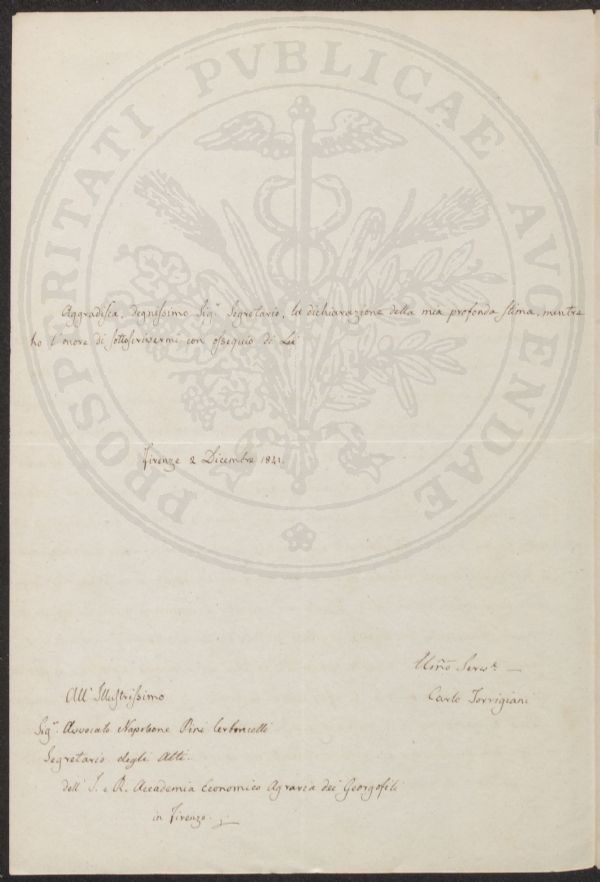 PROSPERITATI PVBLICAE AVGENDAE
Aggradisca, degnissimo Sigr. Segretario, la dichiarazione della mia profonda stima, mentre
ho l'onore di sottoscrivermi con ossequio di Lei
Firenze 2 Dicembre 1841.
Servre.
Carlo Torrigiani
All'Illustrissimo
Sigr. Avvocato Napoleone Pini
Segretario degli Atti
dell' I. e R. Accademia Economico Agraria dei Georgofili
in Firenze.